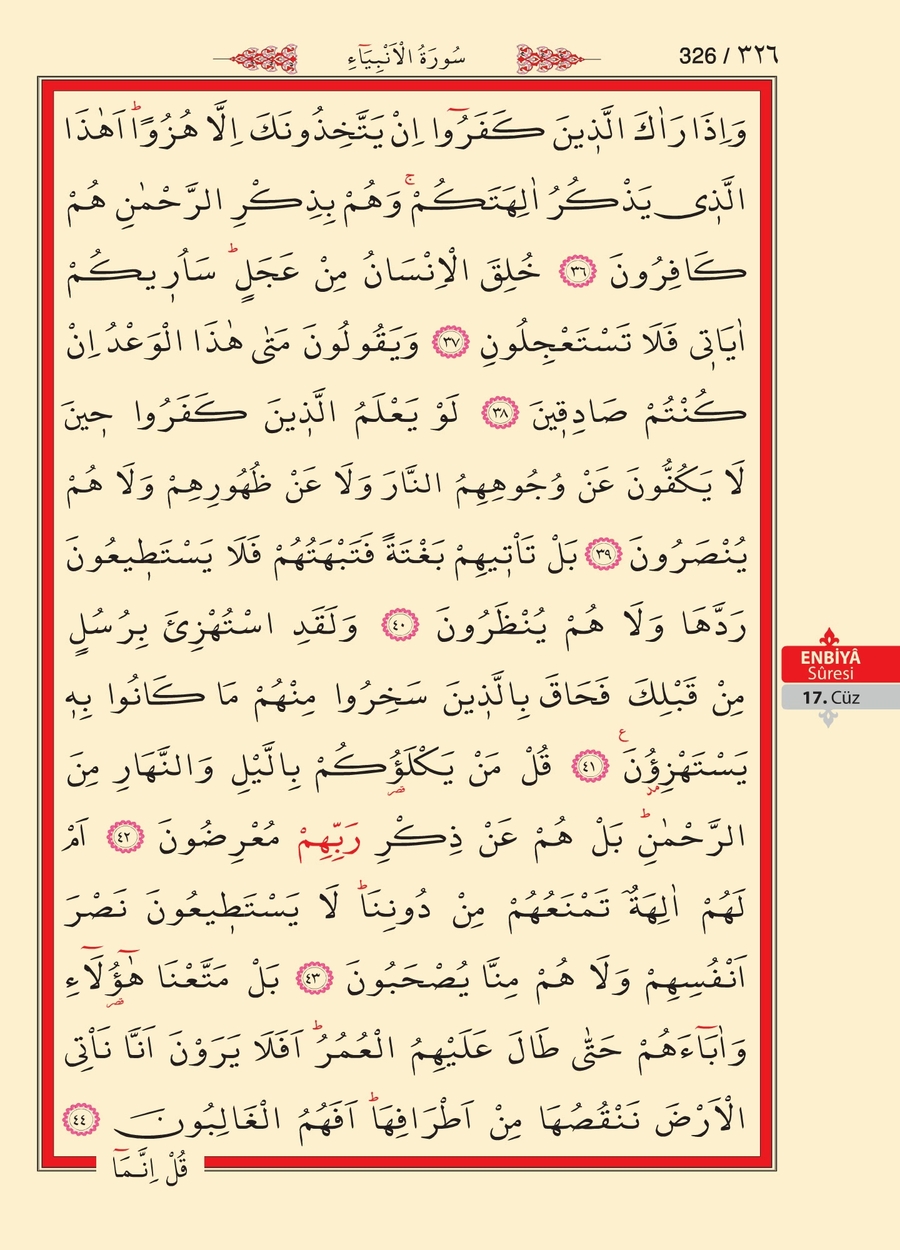 سُورَةُ الْاَنْبِيَٓاءِ
326 / ٣٢٦
وَاِذَا رَاٰكَ الَّذ۪ينَ كَفَرُٓوا اِنْ يَتَّخِذُونَكَ اِلَّا هُزُوًاۜ اَهٰذَا
الَّذ۪ي يَذْكُرُ اٰلِهَتَكُمْۚ وَهُمْ بِذِكْرِ الرَّحْمٰنِ هُمْ
كَافِرُونَ ﴿٣٦﴾ خُلِقَ الْاِنْسَانُ مِنْ عَجَلٍۜ سَاُر۪يكُمْ
اٰيَات۪ي فَلَا تَسْتَعْجِلُونِ ﴿٣٧﴾ وَيَقُولُونَ مَتٰى هٰذَا الْوَعْدُ اِنْ
كُنْتُمْ صَادِق۪ينَ ﴿٣٨﴾ لَوْ يَعْلَمُ الَّذ۪ينَ كَفَرُوا ح۪ينَ
لَا يَكُفُّونَ عَنْ وُجُوهِهِمُ النَّارَ وَلَا عَنْ ظُهُورِهِمْ وَلَا هُمْ
يُنْصَرُونَ ﴿٣٩﴾ بَلْ تَأْت۪يهِمْ بَغْتَةً فَتَبْهَتُهُمْ فَلَا يَسْتَط۪يعُونَ
رَدَّهَا وَلَا هُمْ يُنْظَرُونَ ﴿٤٠﴾ وَلَقَدِ اسْتُهْزِئَ بِرُسُلٍ
مِنْ قَبْلِكَ فَحَاقَ بِالَّذ۪ينَ سَخِرُوا مِنْهُمْ مَا كَانُوا بِه۪
يَسْتَهْزِؤُ۫نَ۟ ﴿٤١﴾ قُلْ مَنْ يَكْلَؤُ۬كُمْ بِالَّيْلِ وَالنَّهَارِ مِنَ
الرَّحْمٰنِۜ بَلْ هُمْ عَنْ ذِكْرِ رَبِّهِمْ مُعْرِضُونَ ﴿٤٢﴾ اَمْ
لَهُمْ اٰلِهَةٌ تَمْنَعُهُمْ مِنْ دُونِنَاۜ لَا يَسْتَط۪يعُونَ نَصْرَ
اَنْفُسِهِمْ وَلَا هُمْ مِنَّا يُصْحَبُونَ ﴿٤٣﴾ بَلْ مَتَّعْنَا هٰٓؤُ۬لَٓاءِ
وَاٰبَٓاءَهُمْ حَتّٰى طَالَ عَلَيْهِمُ الْعُمُرُۜ اَفَلَا يَرَوْنَ اَنَّا نَأْتِي
الْاَرْضَ نَنْقُصُهَا مِنْ اَطْرَافِهَاۜ اَفَهُمُ الْغَالِبُونَ ﴿٤٤﴾
قُلْ اِنَّمَٓا
ENBİYÂ
Sûresi
17. Cüz